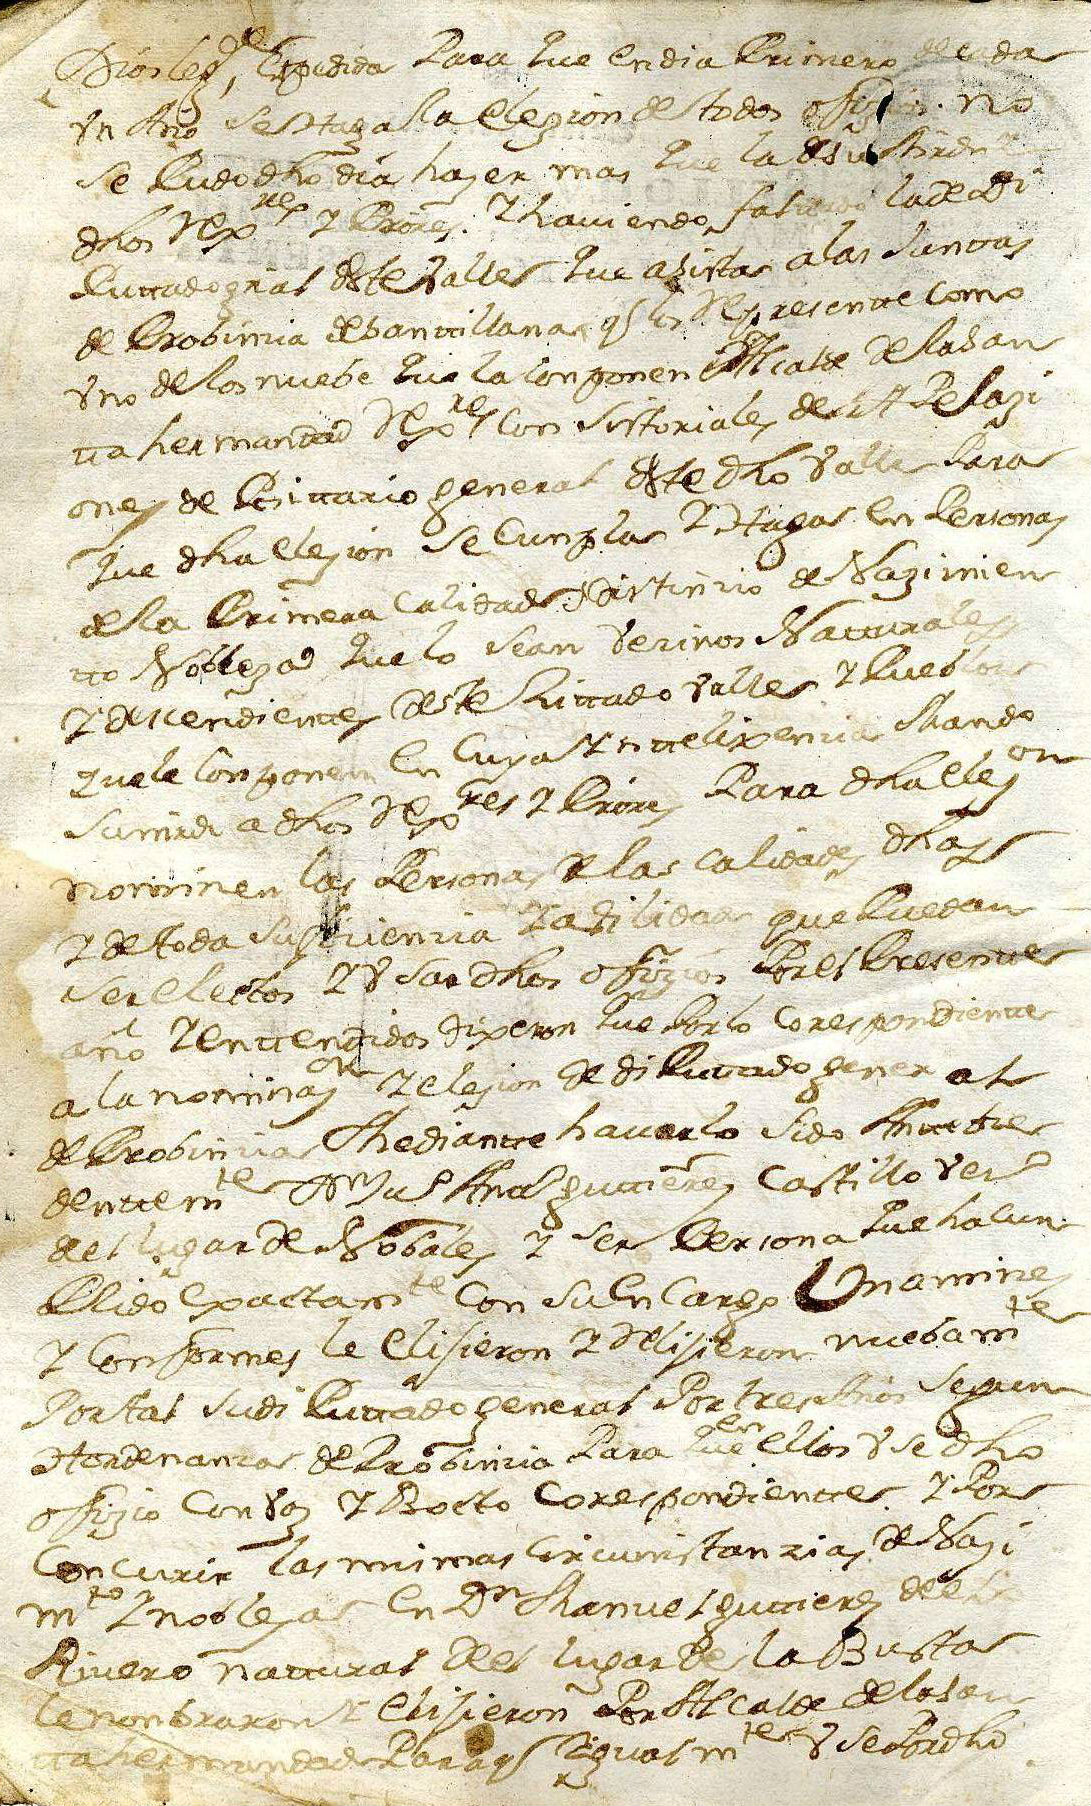 Dios le gde Expedida Para que en dia Primero de cada
un Año se Haga la elezion de todos ofizios. no
se Pudo dho dia hazer mas que la de
dhos Rexres y Prores. y haviendo faltado la de Di
Puttado gral deste Valle que asista a las Junttas
de Probinzia de Santtillana qe los Represente como
uno de los nuebe que la componen Alcalde de la San
tta hermandad Rexres Con Sistoriales de
ones de Posittario general deste dho valle Para
que dha elesion se Cunpla y Haga en Personas
de la Primera calidad Distinzio de Nazimien
tto Nobleza que lo sean Vezinos Natturales
y desendienttes deste Zittado valle y Pueblos
que le Componen en Cuya Inttelixenzia Mando
sumrd a dhos Rexres y Prores Para dha eleson
nominen las Personas de las calidades dhas
y de toda sufizienzia y abilidad que Puedan
ser electos y Usar dhos ofizios Por el Presentte
año y enttendidos Dixeron que Por lo Corespondientte
a la nominazon y elesion de diPuttado general
de Probinzia Mediantte haverlo sido Antte
denttemte Dn Juo Anto guttierrez Castillo Vezo
del lugar de Nobales y ser Persona que ha cun
Plido exactamte Con su en Cargo Unanimes
y Conformes le elijieron y Relijieron nuebamte
Por tal su di Puttado general Por tres Años segun
Hordenanzas de Probinzia Para que en ellos use dho
ofizio Con voz y Bocto Corespondientte y Por
Concurir las mimas circunstanzias de Nazi
mto y noblesa en Dn Manuel guttierez de el
Rivero natural del lugar de la Busta
le nonbraron y elijieron Por Alcalde de la San
tta hermandad Para qe Igualmte Use Por dho